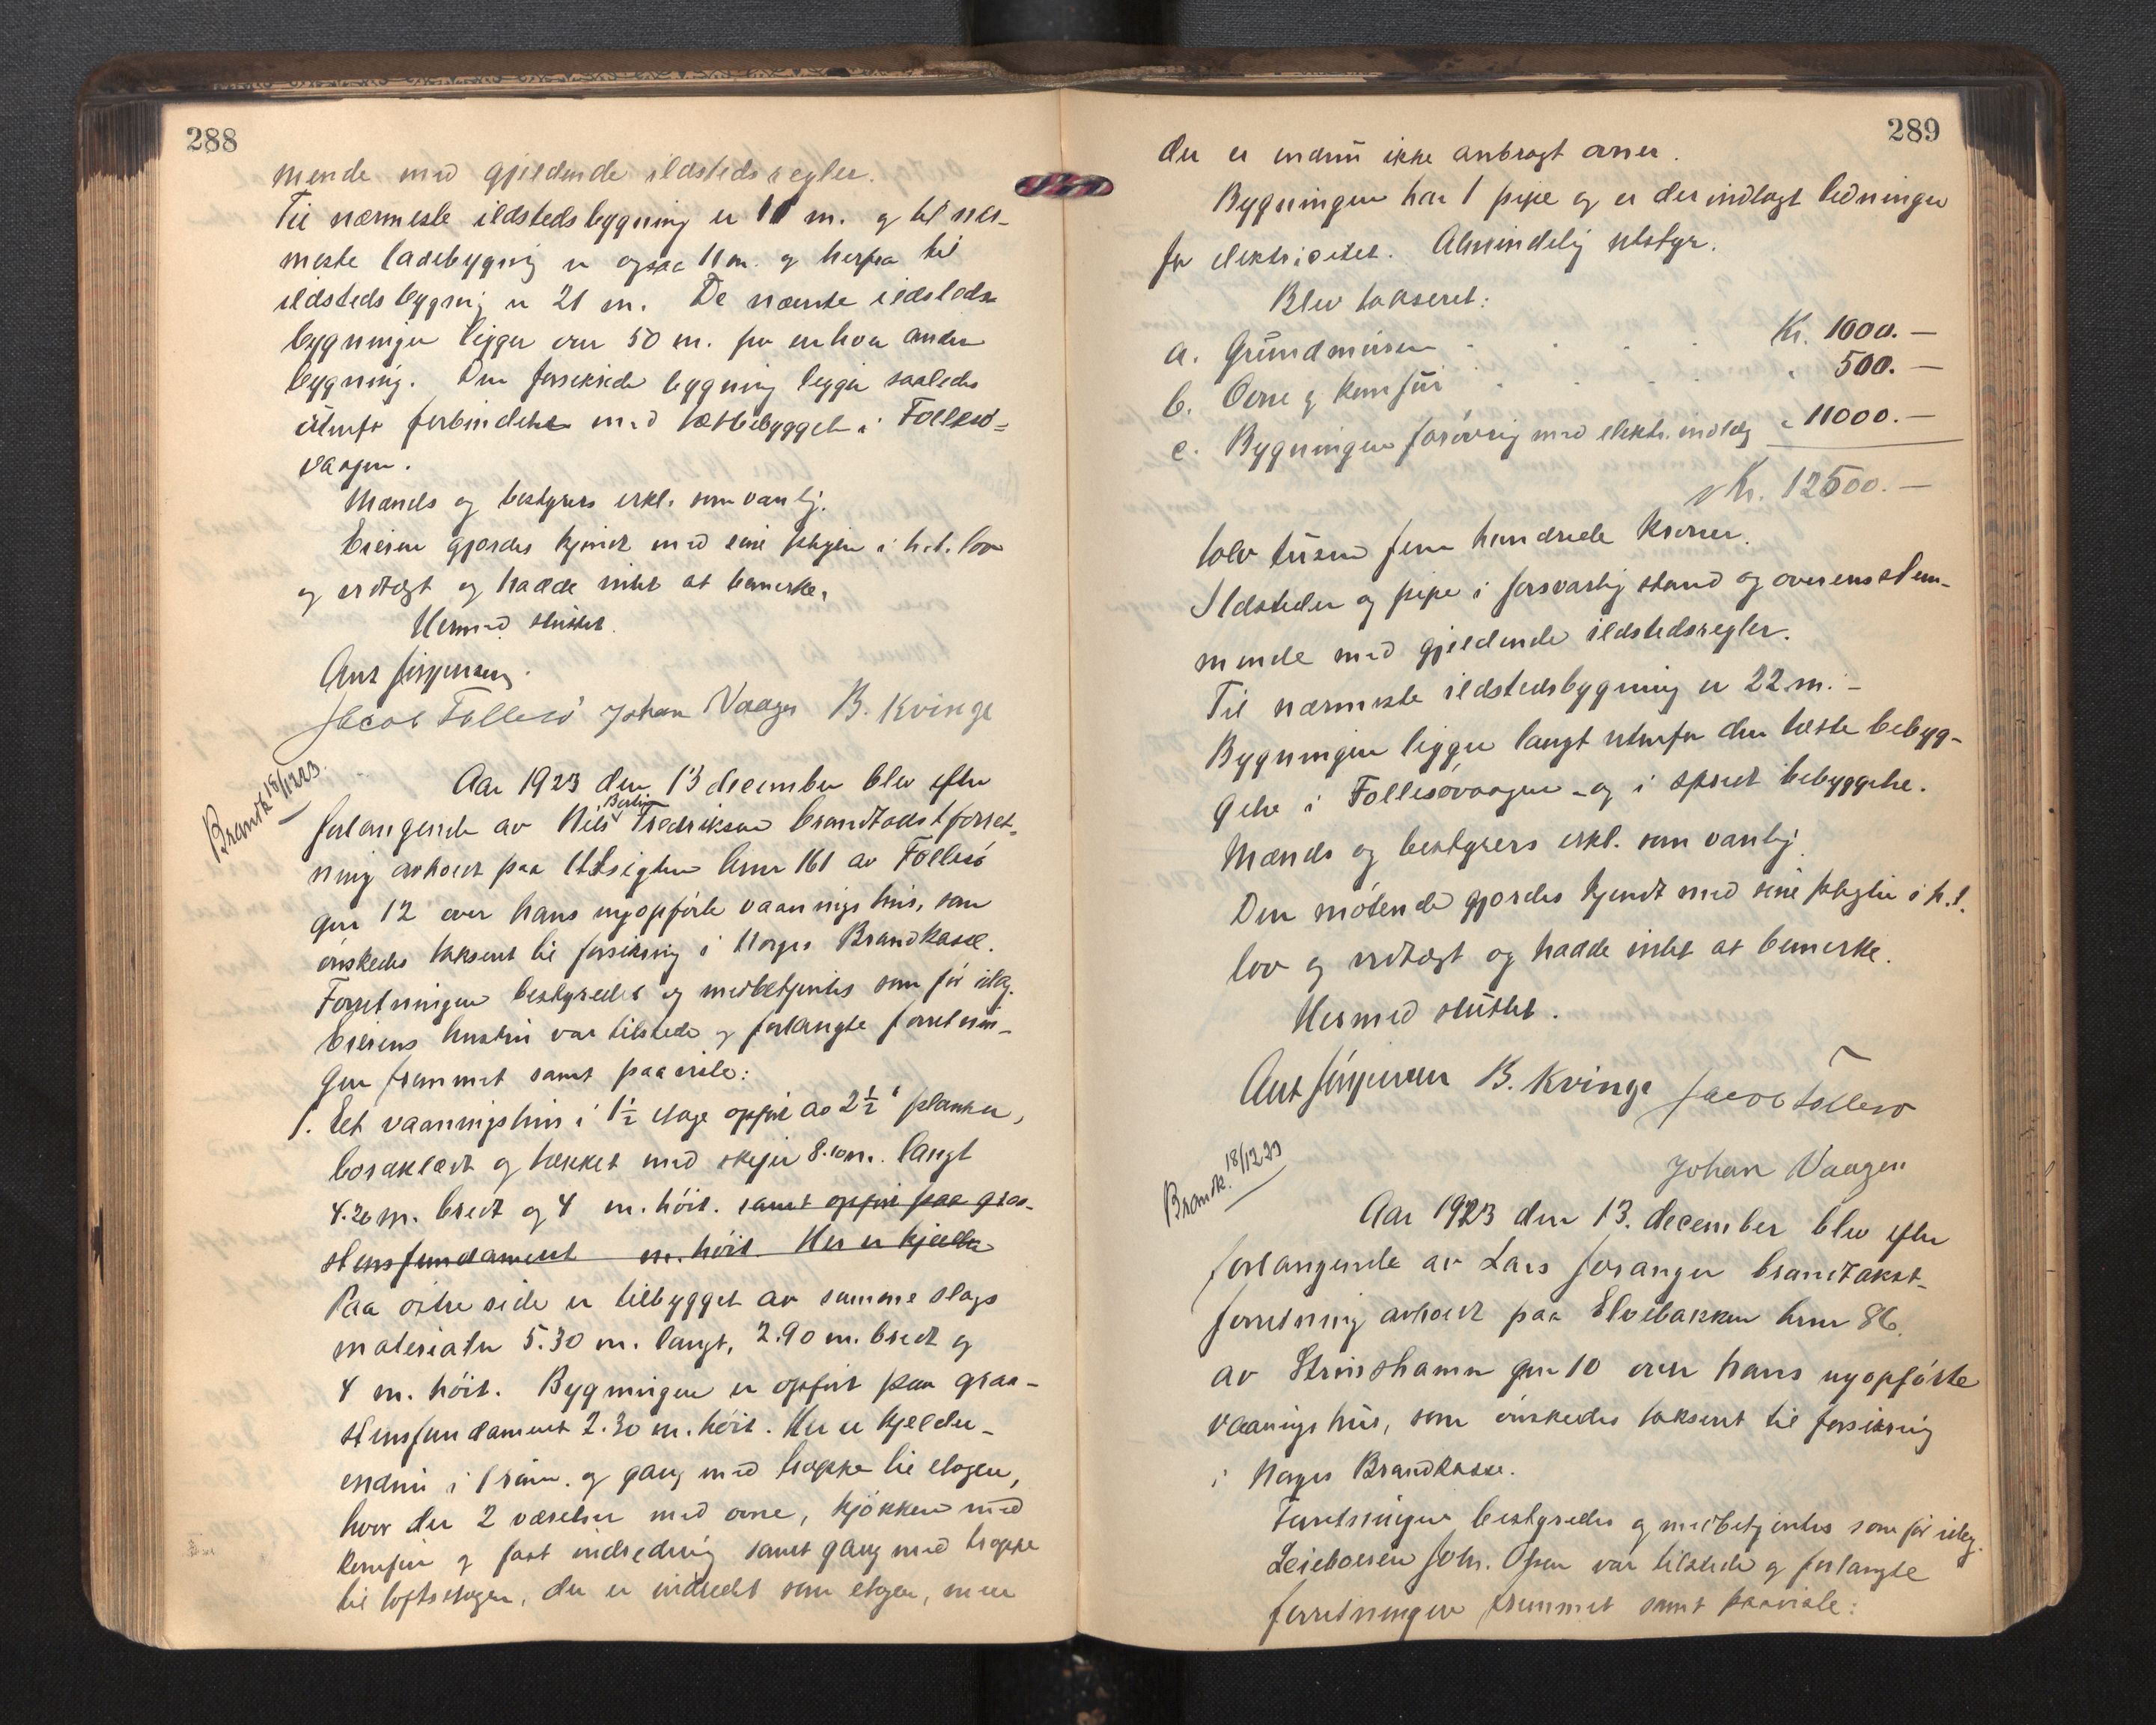 288
mende med gjeldende ildstedsregler.
Til nærmeste ildstedsbygning er 11 m. og til nær-
meste ladebygnig er ogsaa 11 m. og herfra til
ildstedsbygnig er 21 m. De næreste ildsteds
bygninger ligger over 50 m. fra enhver anden
bygning. Den forsikrede bygning ligger saaledes
utenfor forbindelse med tætbebyggelse i Follesø-
vaagen.
Mænds og bestyrers erkl. som vanlig.
Eieren gjordes kjendt med sine pligter i h.t. lov
og vedtægt og hadde intet at bemerke.
Hermed sluttet.
Ant Jørgensen.
Jacob Follesø Johan Vaagen B. Kvinge
Brandk 18/12 23.
Aar 1923 den 13 december blev efter
Bertin
forlangende av Nils Fredriksen brandtakstforret-
ning avholdt paa Utsigten brnr 161 av Follesø
gnr 12 over hans nyopførte vaaningshus, som
ønskedes taksert til forsikring i Norges Brandkasse.
Forretningen bestyredes og medbetjentes som før idag.
Eierens hustru var tilstede og forlangte forretnin-
gen fremmet samt paaviste:
1. Et vaaningshus i 1½ etage opført av 2½" planker,
bordklædt og tækket med skifer 8.10 m. langt
4.20 m. bredt og 4 m. høit. samt opført paa graa-
stensfundament m. høit. Her er kjelder
Paa østre side er tilbygget av samme slags
materialer 5.30 m. langt, 2.90 m. bredt og
4 m. høit. Bygningen er opført paa graa-
stensfundament 2.30 m. høit. Her er kjelder -
endnu i 1 rum. og gang med trappe til etagen,
hvor der 2 værelser med ovne, kjøkken med
komfur og fast indredning samt gang med trappe
til loftsetagen, der er indredet som etagen, men
289
der er endnu ikke anbragt ovner.
Bygningen har 1 pipe og er der indlagt ledninger
for elektricitet. Almindelig utstyr.
Blev taksert:
a. Grundmuren . . . . Kr. 1000.—
b. Ovne og komfur . . . . " 500.—
c. Bygningen forøvrig med elektr. indlæg " 11000.—
Kr. 12500.—
tolv tusen fem hundrede kroner.
Ildsteder og pipe i forsvarlig stand og overensstem-
mende med gjeldende ildstedsregler.
Til nærmeste ildstedsbygning er 22 m. -
Bygningen ligger langt utenfor den tætte bebyg-
gelse i Follesøvaagen - og i spredt bebyggelse.
Mænds og bestyrers erkl. som vanlig
Den møtende gjordes kjendt med sine pligter i h.t.
lov og vedtægt og hadde intet at bemerke.
Hermed sluttet.
Ant Jørgensen B. Kvinge Jacob Follesø
Johan Vaagen
Brandk. 18/12 23
Aar 1923 den 13. december blev efter
forlangende av Lars Soranger brandtakst-
forretning avholdt paa Elvebakken brnr 86.
av Strusshamn gnr 10 over hans nyopførte
vaaningshus, som ønskedes taksert til forsikring
i Norges Brandkasse.
Forretningen bestyredes og medbetjentes som før idag.
Leieboeren Joh. Olsen var tilstede og forlangte
forretningen fremmet samt paaviste: